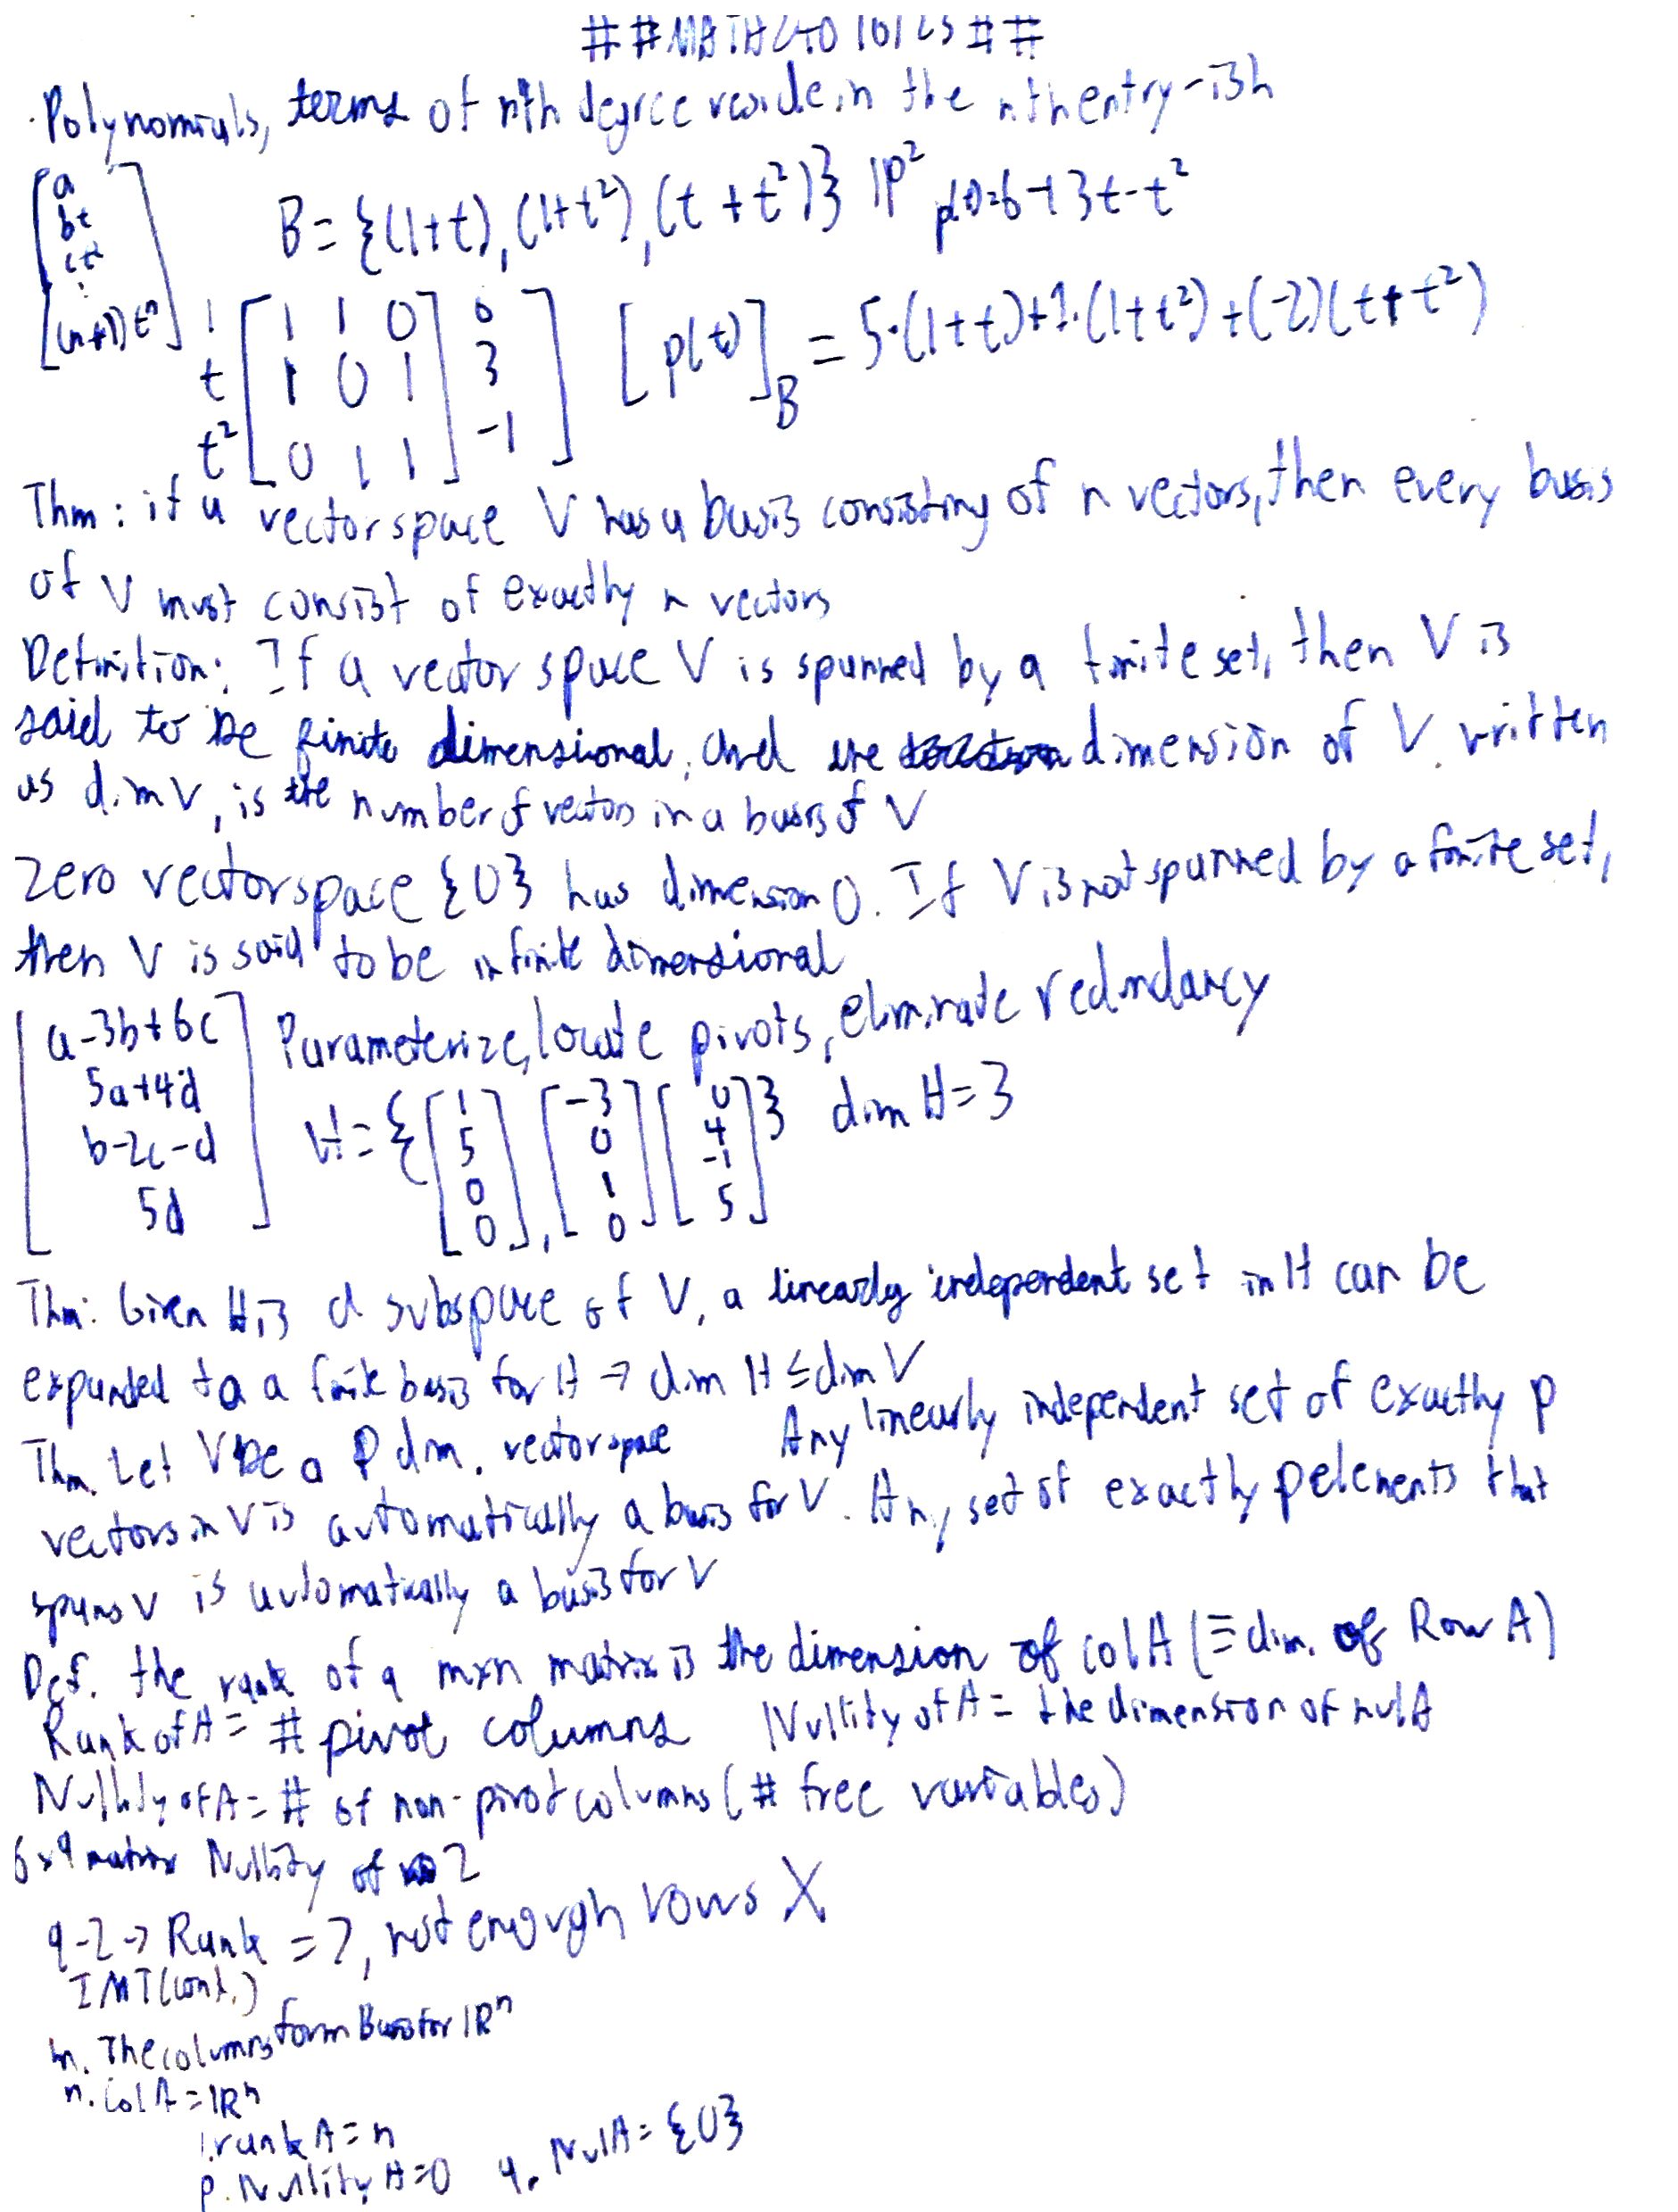 ##MATH240 10/25##
Polynomials, terms of nth degree reside in the nth entry-ish
[a bt ct² : (n+1)tⁿ]
B = {(1+t), (1+t²), (t+t²)} ℙ² p(t)=6+3t-t²
1 [1 1 0] 6
t [1 0 1] 3
t² [0 1 1] -1
[p(t)]_B = 5·(1+t)+1·(1+t²)+(-2)(t+t²)
Thm: if a vector space V has a basis consisting of n vectors, then every basis
of V must consist of exactly n vectors
Definition: If a vector space V is spanned by a finite set, then V is
said to be finite dimensional, and the dimension of V, written
as dim V, is the number of vectors in a basis of V
Zero vector space {0} has dimension 0. If V is not spanned by a finite set,
then V is said to be infinite dimensional
[a-3b+6c
5a+4d
b-2c-d
5d]
Parameterize, locate pivots, eliminate redundancy
H = {[1 5 0 0], [-3 0 1 0] [0 4 -1 5]} dim H = 3
Thm: Given H is a subspace of V, a linearly independent set in H can be
expanded to a finite basis for H → dim H ≤ dim V
Thm. Let V be a P dim. vector space Any linearly independent set of exactly p
vectors in V is automatically a basis for V. Any set of exactly p elements that
spans V is automatically a basis for V
Def. the rank of a mxn matrix is the dimension of col A (≡ dim. of Row A)
Rank of A = # pivot columns Nullity of A = the dimension of nul A
Nullity of A = # of non-pivot columns (# free variables)
6x9 matrix Nullity of 2
9-2 → Rank = 7, not enough rows X
IMT (cont.)
m. The columns form Basis for ℝⁿ
n. Col A = ℝⁿ
rank A = n
p. Nullity A = 0 q. Nul A = {0}